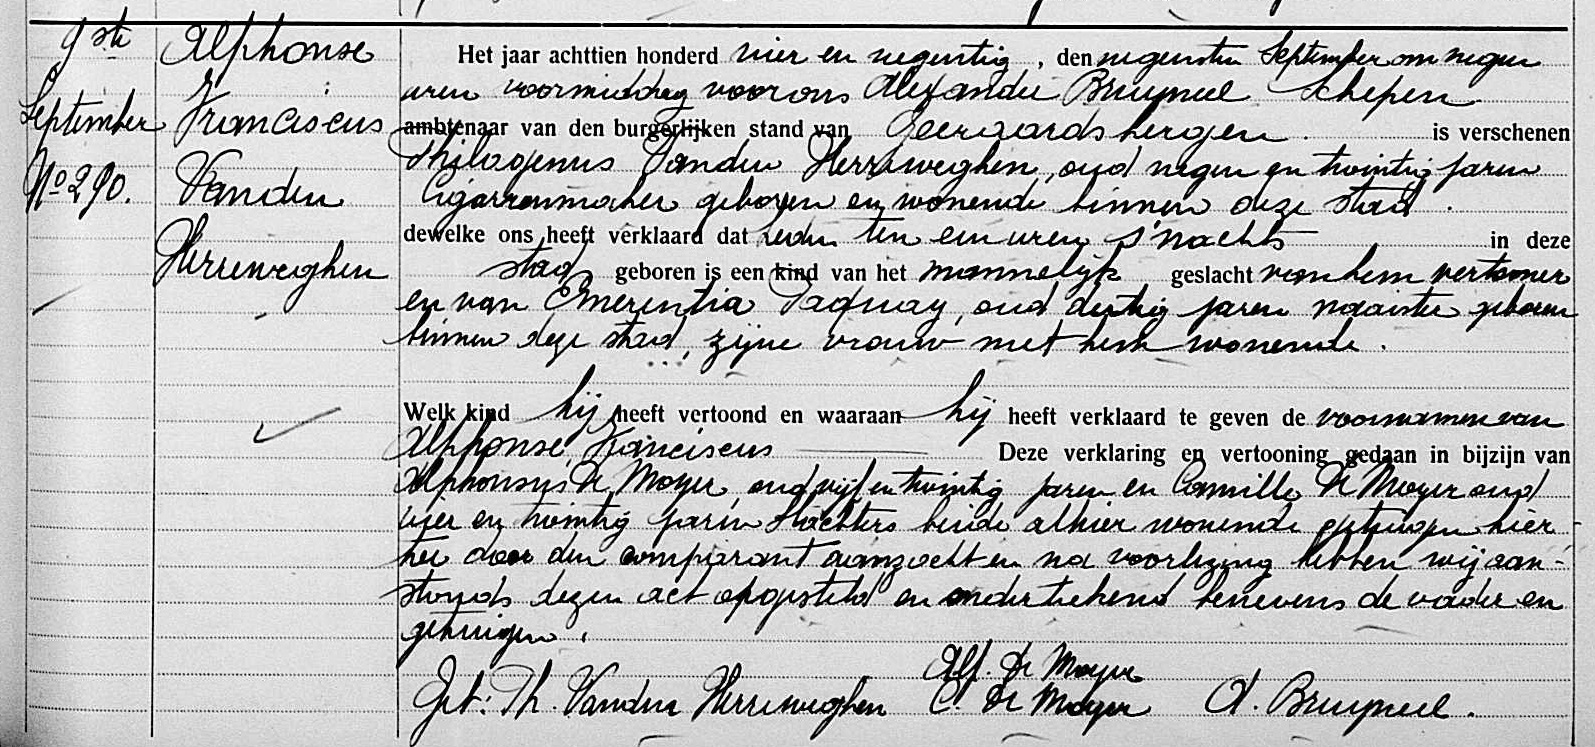 9ste
September
No 290.
Alphonse
Franciscus
Vanden
Herreweghen
Het jaar achttien honderd vier en negentig , den negensten September om negen
uren voormiddag voor ons Alexander Bruyneel Schepen
ambtenaar van den burgerlijken stand van Geeraardsbergen . is verschenen
Philogenus Vanden Herreweghen, oud negen en twintig jaren
Cigarrenmaker geboren en wonende binnen deze stad .
dewelke ons heeft verklaard dat heden ten een uren s'nachts in deze
stad geboren is een kind van het mannelijk geslacht van hem vertooner
en van Emerentia Paquay, oud dertig jaren naaister geboren
binnen deze stad, zijne vrouw met hem wonende .
Welk kind hij heeft vertoond en waaraan hij heeft verklaard te geven de voornamen van
Alphonse, Franciscus — Deze verklaring en vertooning gedaan in bijzijn van
Alphonsus De Moyer, oud vijf en twintig jaren en Camille De Moyer oud
vier en twintig jaren slachters beide alhier wonende getuigen hier-
toe door den comparant aanzocht en na voorlezing hebben wij aan-
stonds dezen act opgesteld en onderteekend benevens de vader en
getuigen .
Get: Th. Vanden Herreweghen Alf. De Moyer
C. De Moyer A. Bruyneel.